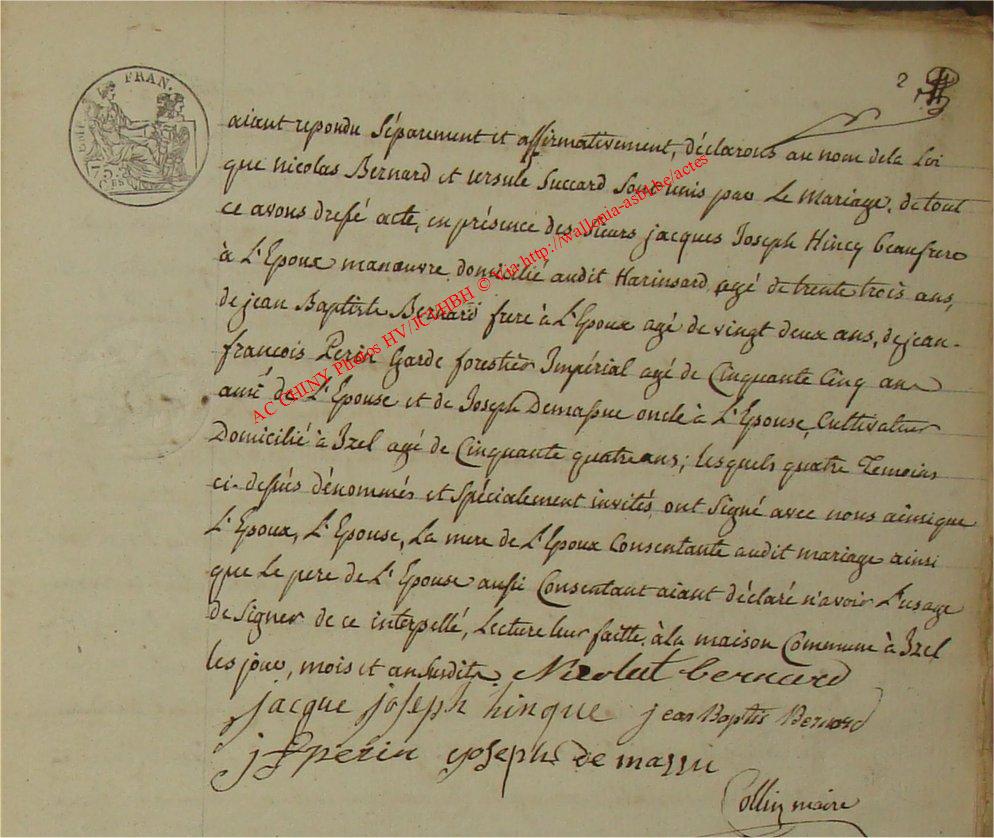 2
FRAN.
75. CES
aiant repondu Séparement et affirmativement, déclarons au nom de la Loi
que nicolas Bernard et ursule Succard sont unis par Le Mariage, de tout
ce avons dressé acte, en présence des sieurs jacques Joseph Hincq beaufrere
à L'Epoux manœuvre domicilié audit Harinsard agé de trente trois ans,
de jean Baptiste Bernard frere à L'Epoux agé de vingt deux ans, de jean-
françois Perin Garde forestier Impérial agé de Cinquante Cinq ans
ami de L'Epouse et de Joseph Demassue oncle à L'Epouse, Cultivateur
Domicilié à Izel agé de Cinquante quatre ans; lesquels quatre Temoins
ci-dessus dénommés et Spécialement invités, ont Signé avec nous ainsique
L'Epoux, L'Epouse, La mere de L'Epoux Consentante audit mariage ainsi
que Le pere de L'Epouse aussi Consentant aiant déclaré n'avoir L'usage
de Signer de ce interpellé, Lecture leur faitte, à la maison Commune à Izel
les jour, mois et an Susdits. Nicolas bernard
jacque joseph hinque jean Baptis Bernard
jf perin joseph de massu
Collin maire
AC CHINY Photos HV/JCI/HBH © via http://wallonia-asbl.be/actes